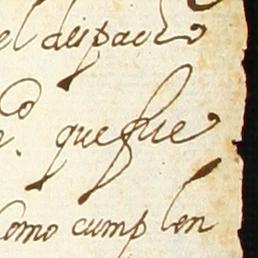 el despacho
que fue
Como cumplen